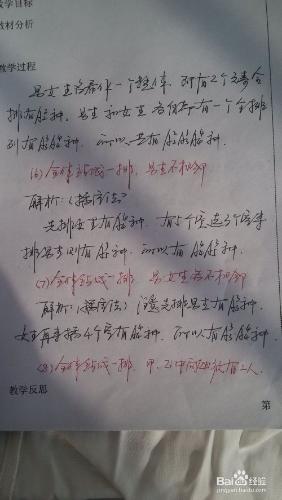 学目标
教材分析
教学过程
男女生各看作一个整体,则有2个元素全
排有种,男生和女生各有一个全排
列有种,所以共有种
(6)全体站成一排,男生不相邻
解析:(插空法)
先排女生有种,有5个空选3个空来
排男生则有种,所以有种
(7)全体站成一排,男女生各不相邻
解析:(插空法)先排男生有种,
女生再来插4个空有种,所以有种
(8)全体站成一排,甲、乙中间必须有2人.
教学反思
第
Baidu经验
jingyan.baidu.com